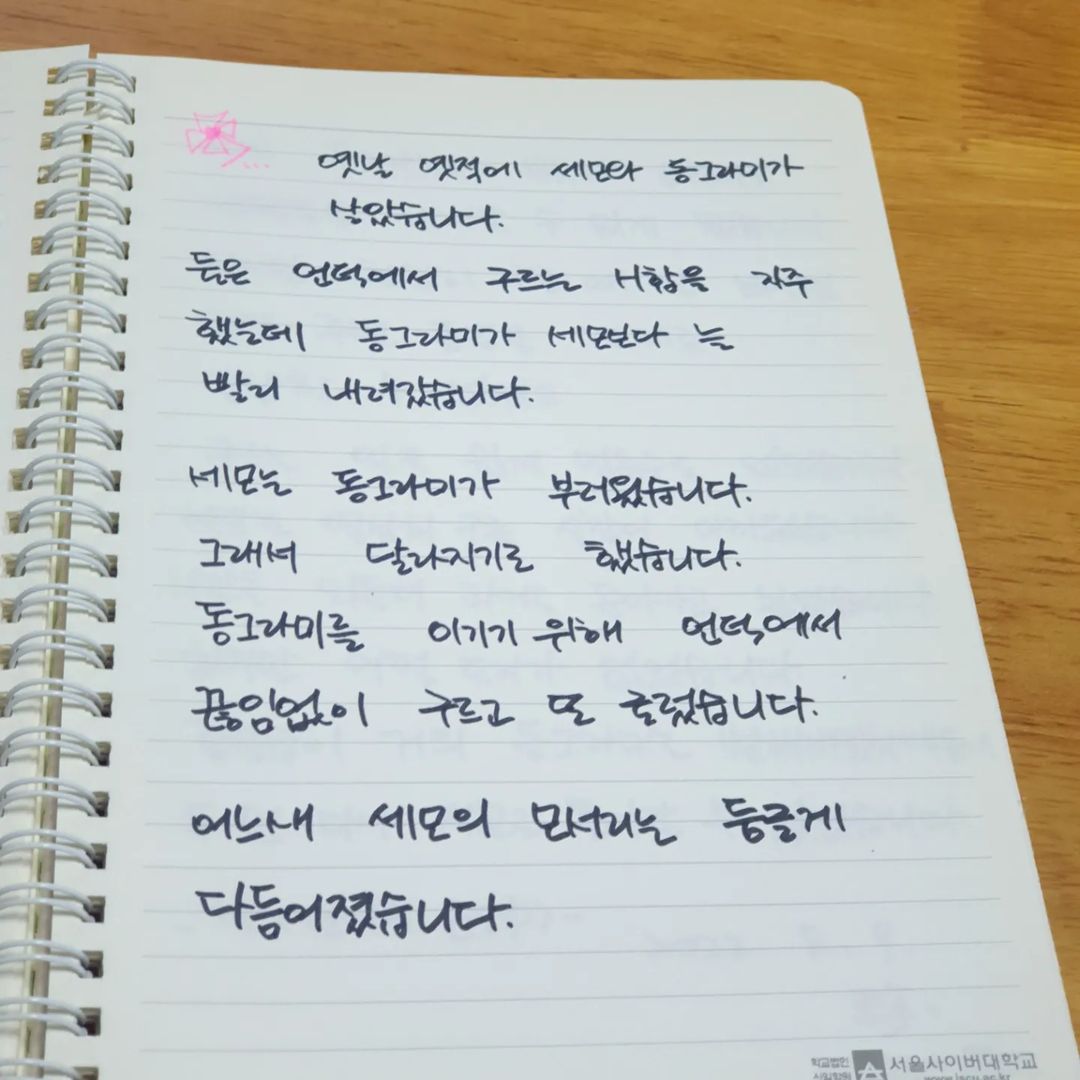 옛날 옛적에 세모와 동그라미가
살았습니다.
둘은 언덕에서 구르는 시합을 자주
했는데 동그라미가 세모보다 늘
빨리 내려갔습니다.
세모는 동그라미가 부러웠습니다.
그래서 달라지기로 했습니다.
동그라미를 이기기 위해 언덕에서
끊임없이 구르고 또 굴렀습니다.
어느새 세모의 모서리는 둥글게
다듬어졌습니다.
학교법인
신일학원
서울사이버대학교
www.iscu.ac.kr